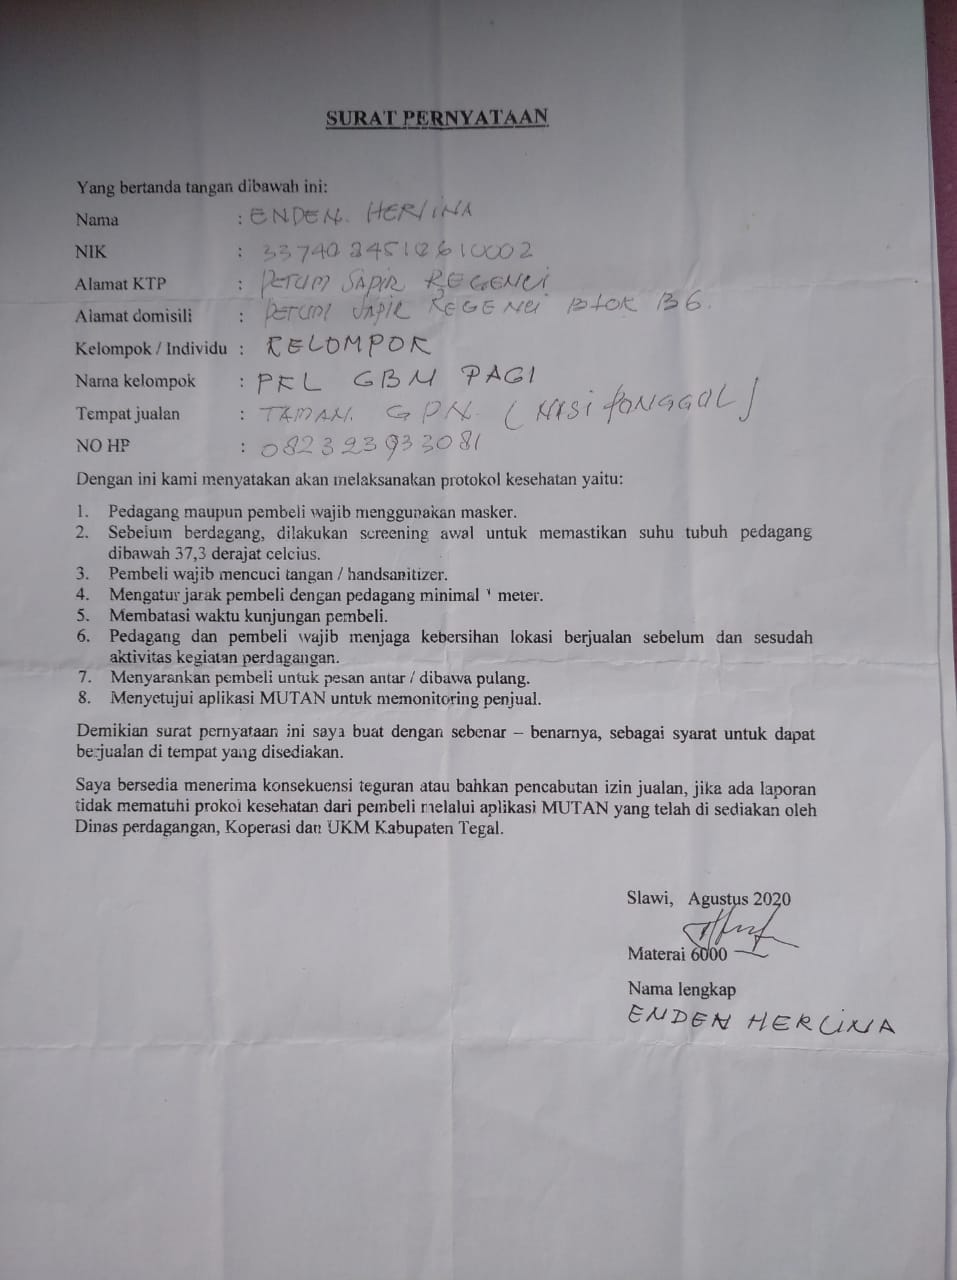 SURAT PERNYATAAN
Yang bertanda tangan dibawah ini:
Nama : ENDEN HERLINA
NIK :
Alamat KTP : PERUM SAPIR REGENCI
Alamat domisili : PERUM SAPIR REGENCI BLOK B6.
Kelompok / Individu : KELOMPOK
Nama kelompok : PKL GBN PAGI
Tempat jualan : TAMAN GPN (NASI PONGGOL)
NO HP : 082323933081
Dengan ini kami menyatakan akan melaksanakan protokol kesehatan yaitu:
1. Pedagang maupun pembeli wajib menggunakan masker.
2. Sebelum berdagang, dilakukan screening awal untuk memastikan suhu tubuh pedagang
dibawah 37,3 derajat celcius.
3. Pembeli wajib mencuci tangan / handsanitizer.
4. Mengatur jarak pembeli dengan pedagang minimal meter.
5. Membatasi waktu kunjungan pembeli.
6. Pedagang dan pembeli wajib menjaga kebersihan lokasi berjualan sebelum dan sesudah
aktivitas kegiatan perdagangan.
7. Menyarankan pembeli untuk pesan antar / dibawa pulang.
8. Menyetujui aplikasi MUTAN untuk memonitoring penjual.
Demikian surat pernyataan ini saya buat dengan sebenar – benarnya, sebagai syarat untuk dapat
berjualan di tempat yang disediakan.
Saya bersedia menerima konsekuensi teguran atau bahkan pencabutan izin jualan, jika ada laporan
tidak mematuhi prokol kesehatan dari pembeli melalui aplikasi MUTAN yang telah di sediakan oleh
Dinas perdagangan, Koperasi dan UKM Kabupaten Tegal.
Slawi, Agustus 2020
Materai 6000
Nama lengkap
ENDEN HERLINA